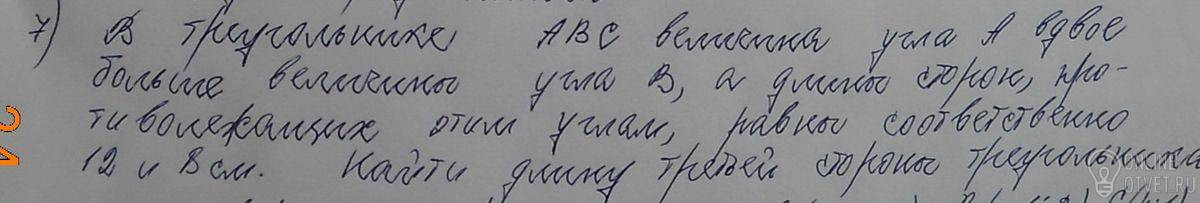 7) В треугольнике ABC величина угла A вдвое
больше величины угла B, а длины сторон, про-
тиволежащих этим углам, равны соответственно
12 и 8 см. Найти длину третьей стороны треугольника
24
ONLINE
OTVET.RU